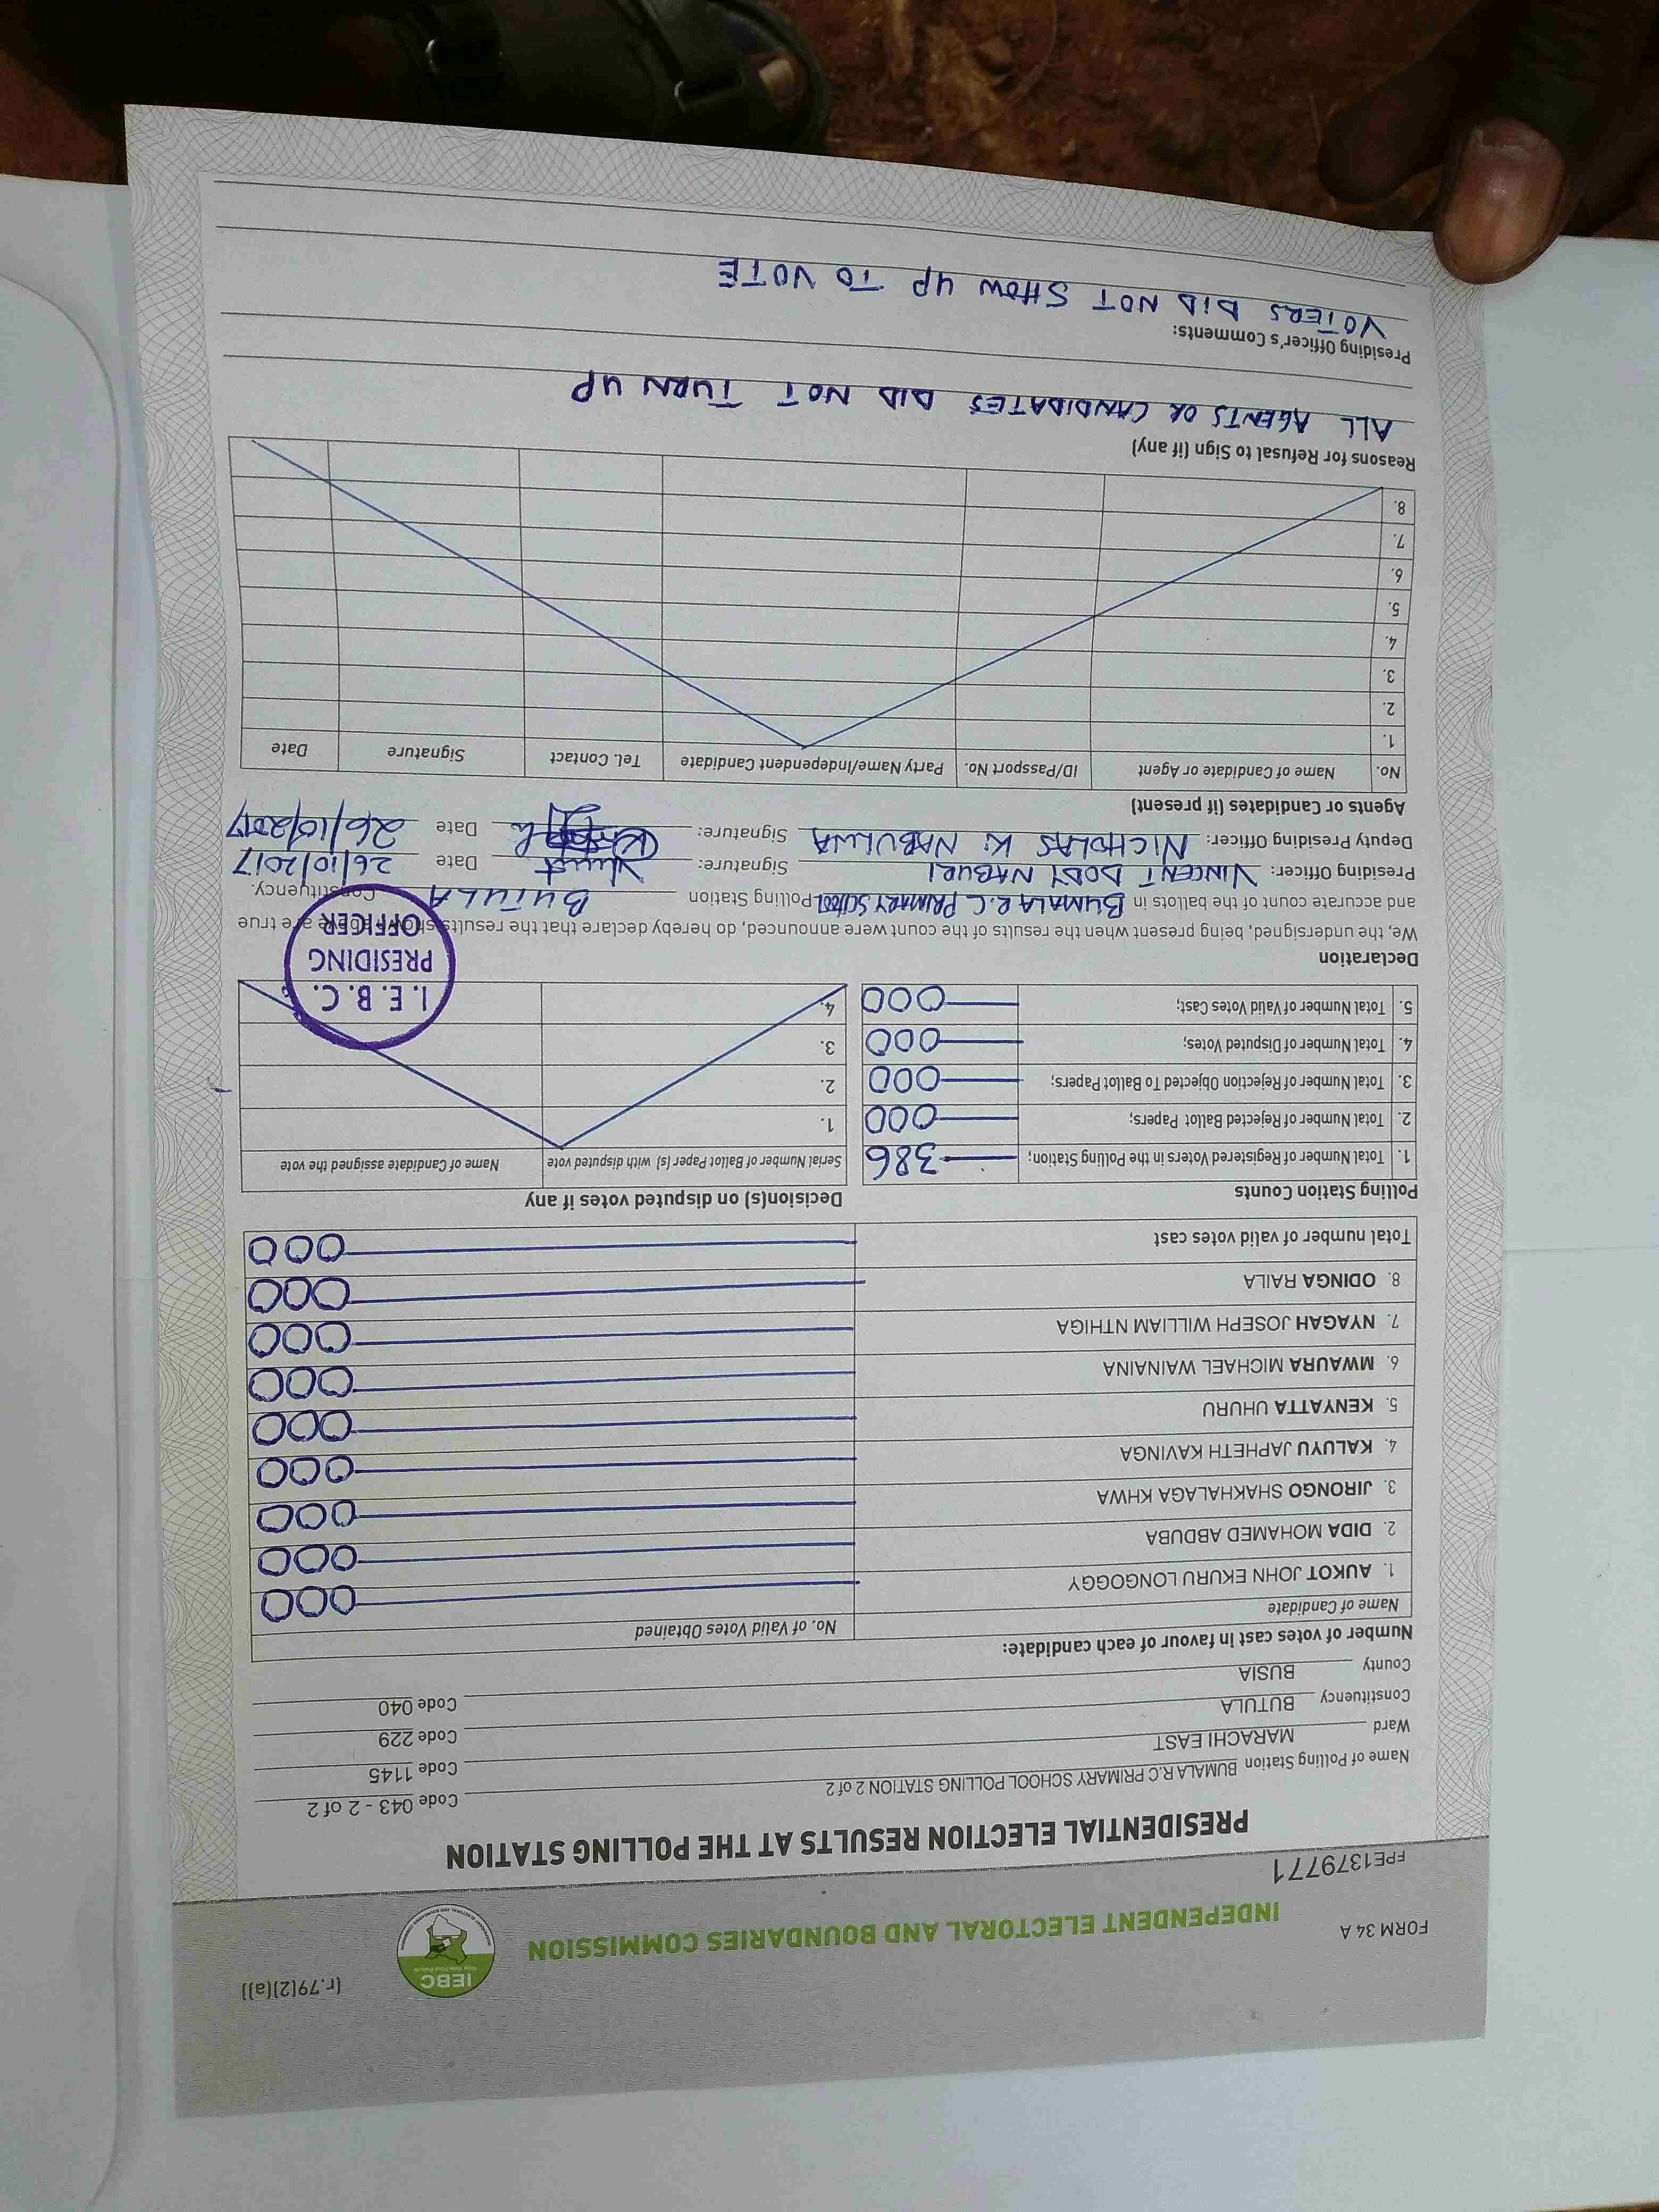 FORM 34 A
(r.79(2)(a))
INDEPENDENT ELECTORAL AND BOUNDARIES COMMISSION
IEBC
FPE1379771
PRESIDENTIAL ELECTION RESULTS AT THE POLLING STATION
Name of Polling Station BUMALA R.C PRIMARY SCHOOL POLLING STATION 2 of 2 Code 043 - 2 of 2
Ward MARACHI EAST Code 1145
Constituency BUTULA Code 229
County BUSIA Code 040
Number of votes cast in favour of each candidate:
Name of Candidate No. of Valid Votes Obtained
1. AUKOT JOHN EKURU LONGOGGY 000
2. DIDA MOHAMED ABDUBA 000
3. JIRONGO SHAKHALAGA KHWA 000
4. KALUYU JAPHETH KAVINGA 000
5. KENYATTA UHURU 000
6. MWAURA MICHAEL WAINAINA 000
7. NYAGAH JOSEPH WILLIAM NTHIGA 000
8. ODINGA RAILA 000
Total number of valid votes cast 000
Polling Station Counts
1. Total Number of Registered Voters in the Polling Station; 386
2. Total Number of Rejected Ballot Papers; 000
3. Total Number of Rejection Objected To Ballot Papers; 000
4. Total Number of Disputed Votes; 000
5. Total Number of Valid Votes Cast; 000
Decision(s) on disputed votes if any
Serial Number of Ballot Paper (s) with disputed vote Name of Candidate assigned the vote
1.
2.
3.
4.
I.E.B.C.
PRESIDING
OFFICER
Declaration
We, the undersigned, being present when the results of the count were announced, do hereby declare that the results shown above are true
and accurate count of the ballots in BUMALA R.C PRIMARY SCHOOL Polling Station BUTULA Constituency.
Presiding Officer: VINCENT DODY NABURI Signature: Date 26/10/2017
Deputy Presiding Officer: NICHOLAS K. NABULWA Signature: Date 26/10/2017
Agents or Candidates (if present)
No. Name of Candidate or Agent ID/Passport No. Party Name/Independent Candidate Tel. Contact Signature Date
1.
2.
3.
4.
5.
6.
7.
8.
Reasons for Refusal to Sign (if any)
ALL AGENTS OR CANDIDATES DID NOT TURN UP
Presiding Officer's Comments:
VOTERS DID NOT SHOW UP TO VOTE